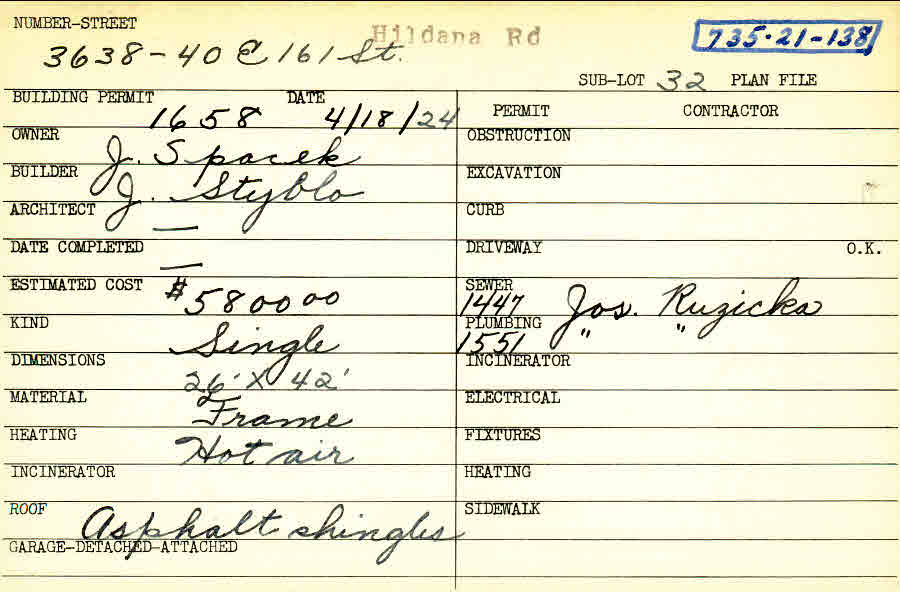 NUMBER-STREET
Hildana Rd
735-21-138
3638-40 E 161 St.
SUB-LOT 32 PLAN FILE
BUILDING PERMIT 1658 DATE 4/18/24
PERMIT CONTRACTOR
OWNER J. Spacek
OBSTRUCTION
BUILDER J. Styblo
EXCAVATION
ARCHITECT —
CURB
DATE COMPLETED —
DRIVEWAY O.K.
ESTIMATED COST $5800 00
SEWER 1447 Jos. Ruzicka
KIND Single
PLUMBING 1551 " "
DIMENSIONS 26' X 42'
INCINERATOR
MATERIAL Frame
ELECTRICAL
HEATING Hot air
FIXTURES
INCINERATOR
HEATING
ROOF Asphalt shingles
SIDEWALK
GARAGE-DETACHED-ATTACHED